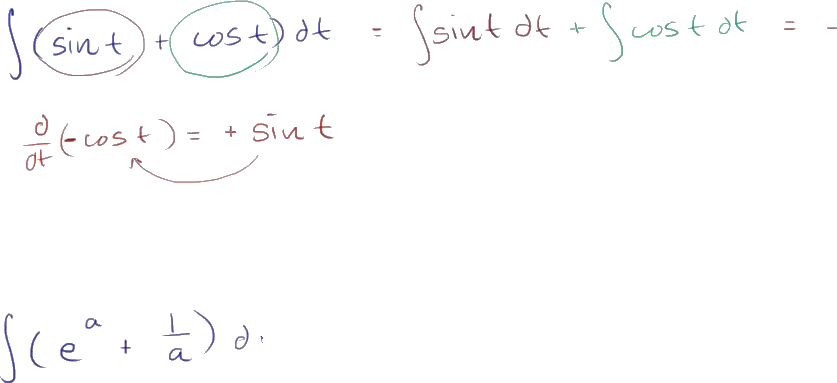 ∫(sin t + cos t) dt = ∫ sin t dt + ∫ cos t dt = -
d/dt (-cos t) = + sin t
∫(e^a + 1/a) d